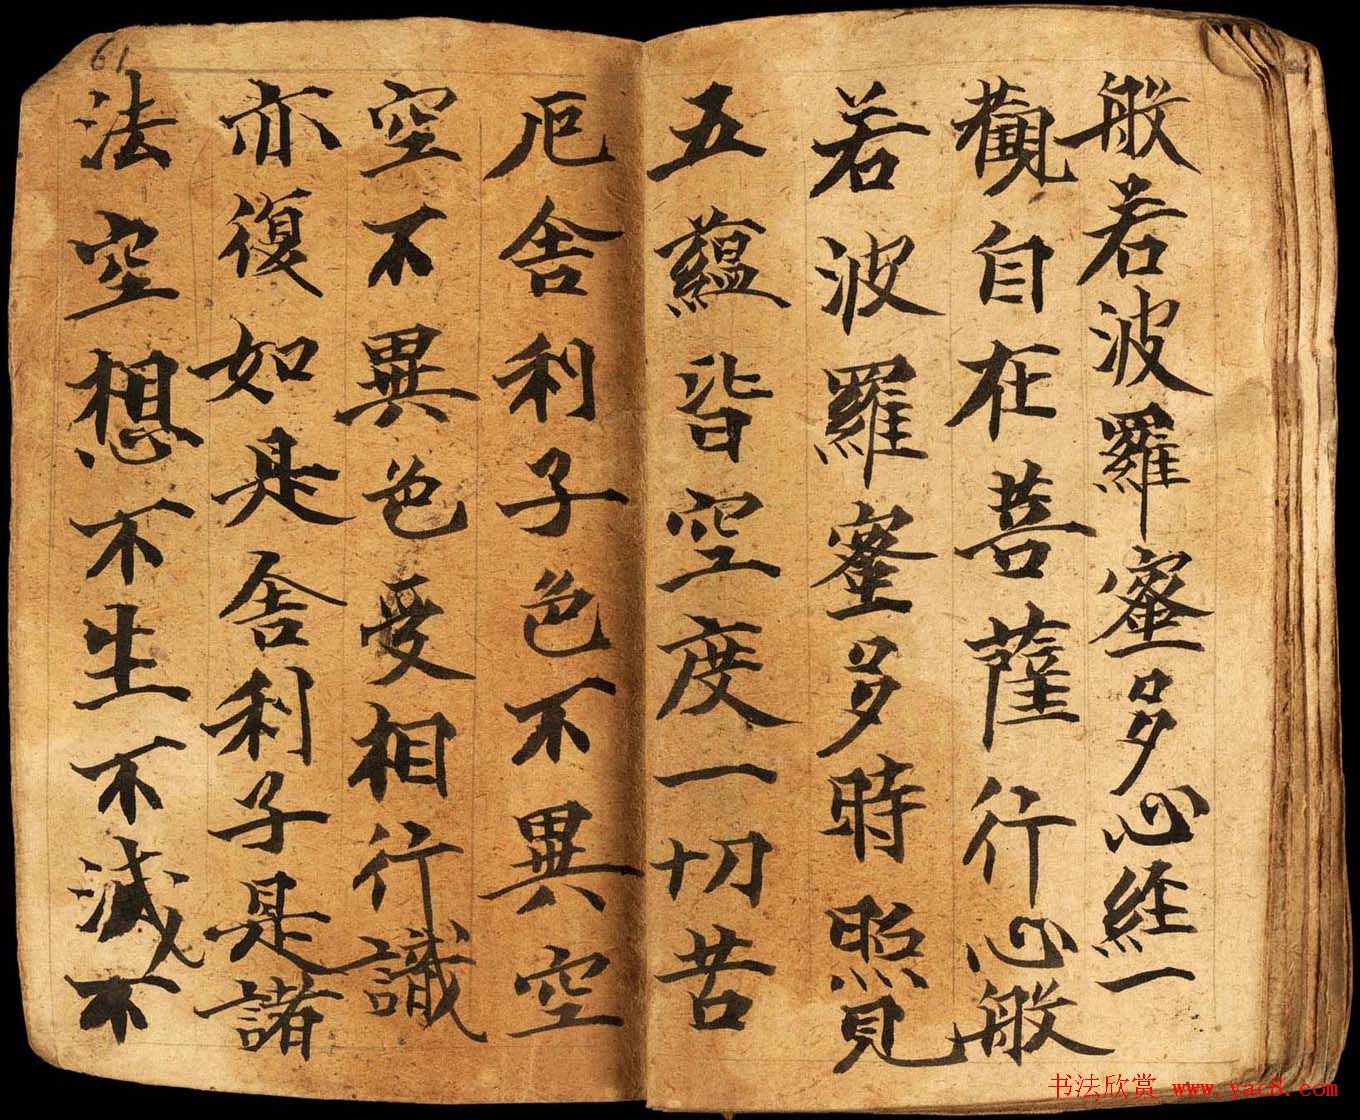 般若波羅蜜多心経一
觀自在菩薩行心般
若波羅蜜多時照見
五蘊皆空度一切苦
厄舍利子色不異空
空不異色受相行識
亦復如是舍利子是諸
法空想不生不滅不
61
书法欣赏 www.yac8.com